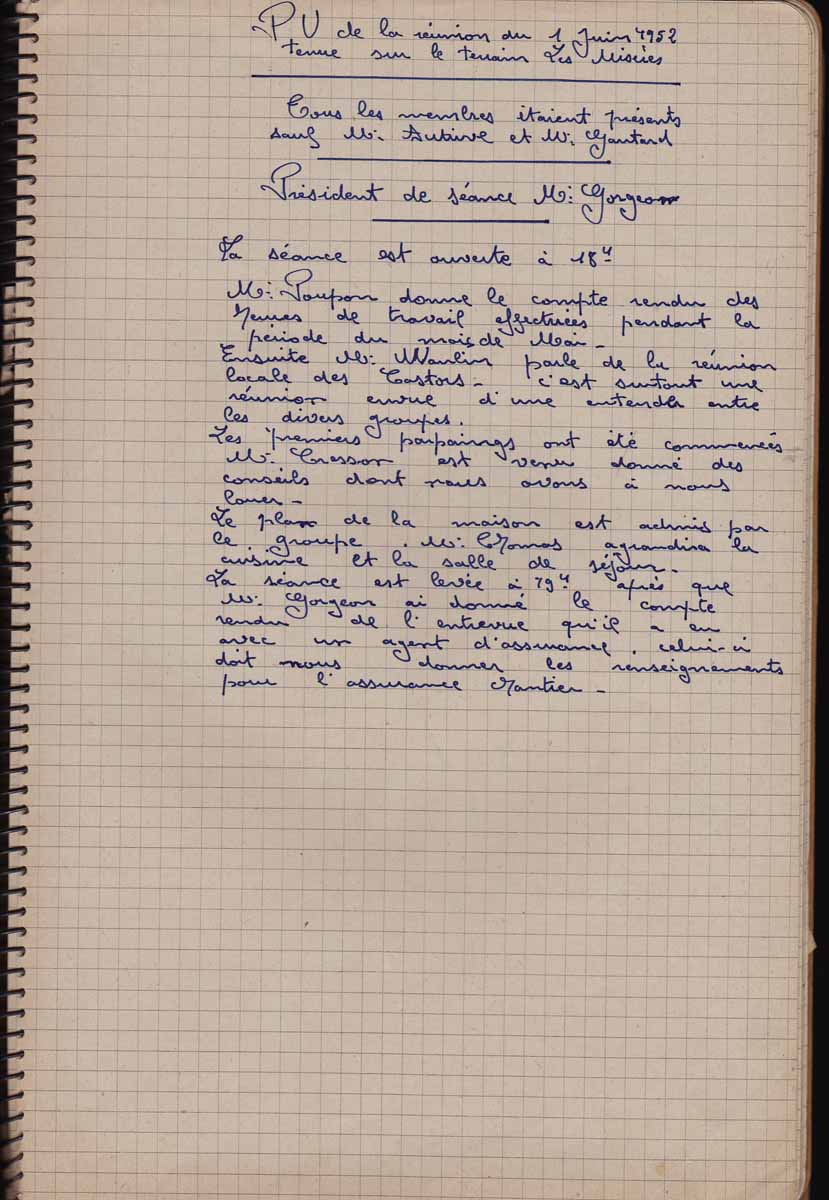 PV de la réunion du 1 Juin 1952
tenue sur le terrain Les Misères
Tous les membres étaient présents
sauf Mr. et Mr. Gautard
Président de séance Mr. Gorgeon
La séance est ouverte à 18H
Mr. Poupon donne le compte rendu des
heures de travail effectuées pendant la
période du mois de Mai -
Ensuite Mr. Maulin parle de la réunion
locale des Castors - c'est surtout une
réunion envue d'une entende entre
les divers groupes.
Les premiers parpaings ont été commencés
Mr. Cresson est venu donné des
conseils dont nous avons à nous
louer -
Le plan de la maison est admis par
le groupe. Mr. agrandira la
cuisine et la salle de séjour.
La séance est levée à 19H après que
Mr. Gorgeon ai donné le compte
rendu de l'entrevue qu'il a eu
avec un agent d'assurance. celui-ci
doit nous donner les renseignements
pour l'assurance chantier -